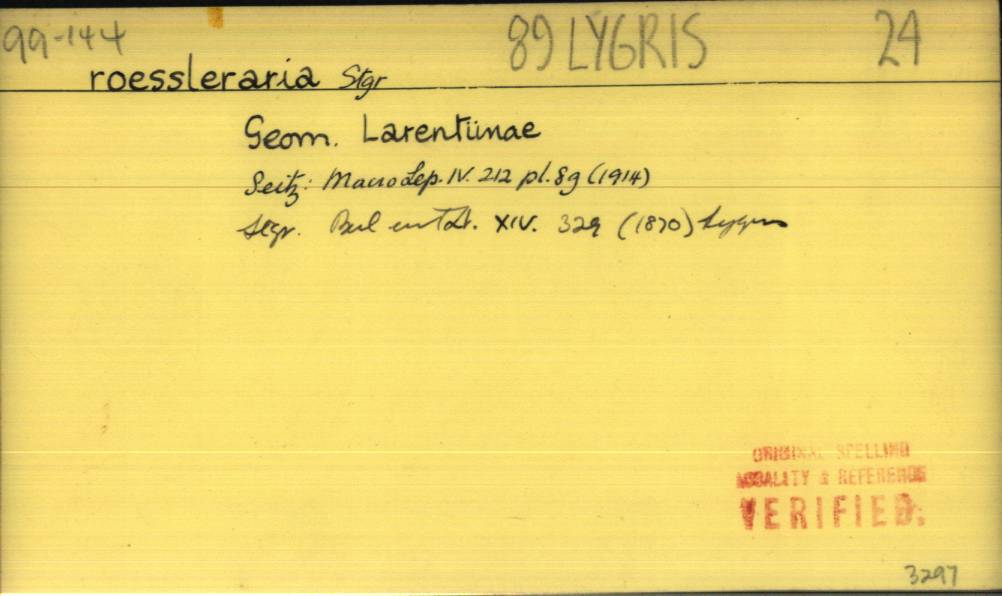 99-144 89 LYGRIS 24
roessleraria Stgr
Geom. Larentiinae
Seitz: Macrolep. IV. 212 pl. 8g (1914)
Stgr. Berl ent Zt. XIV. 329 (1870) Lygris
ORIGINAL SPELLING
LOCALITY & REFERENCE
VERIFIED.
3297